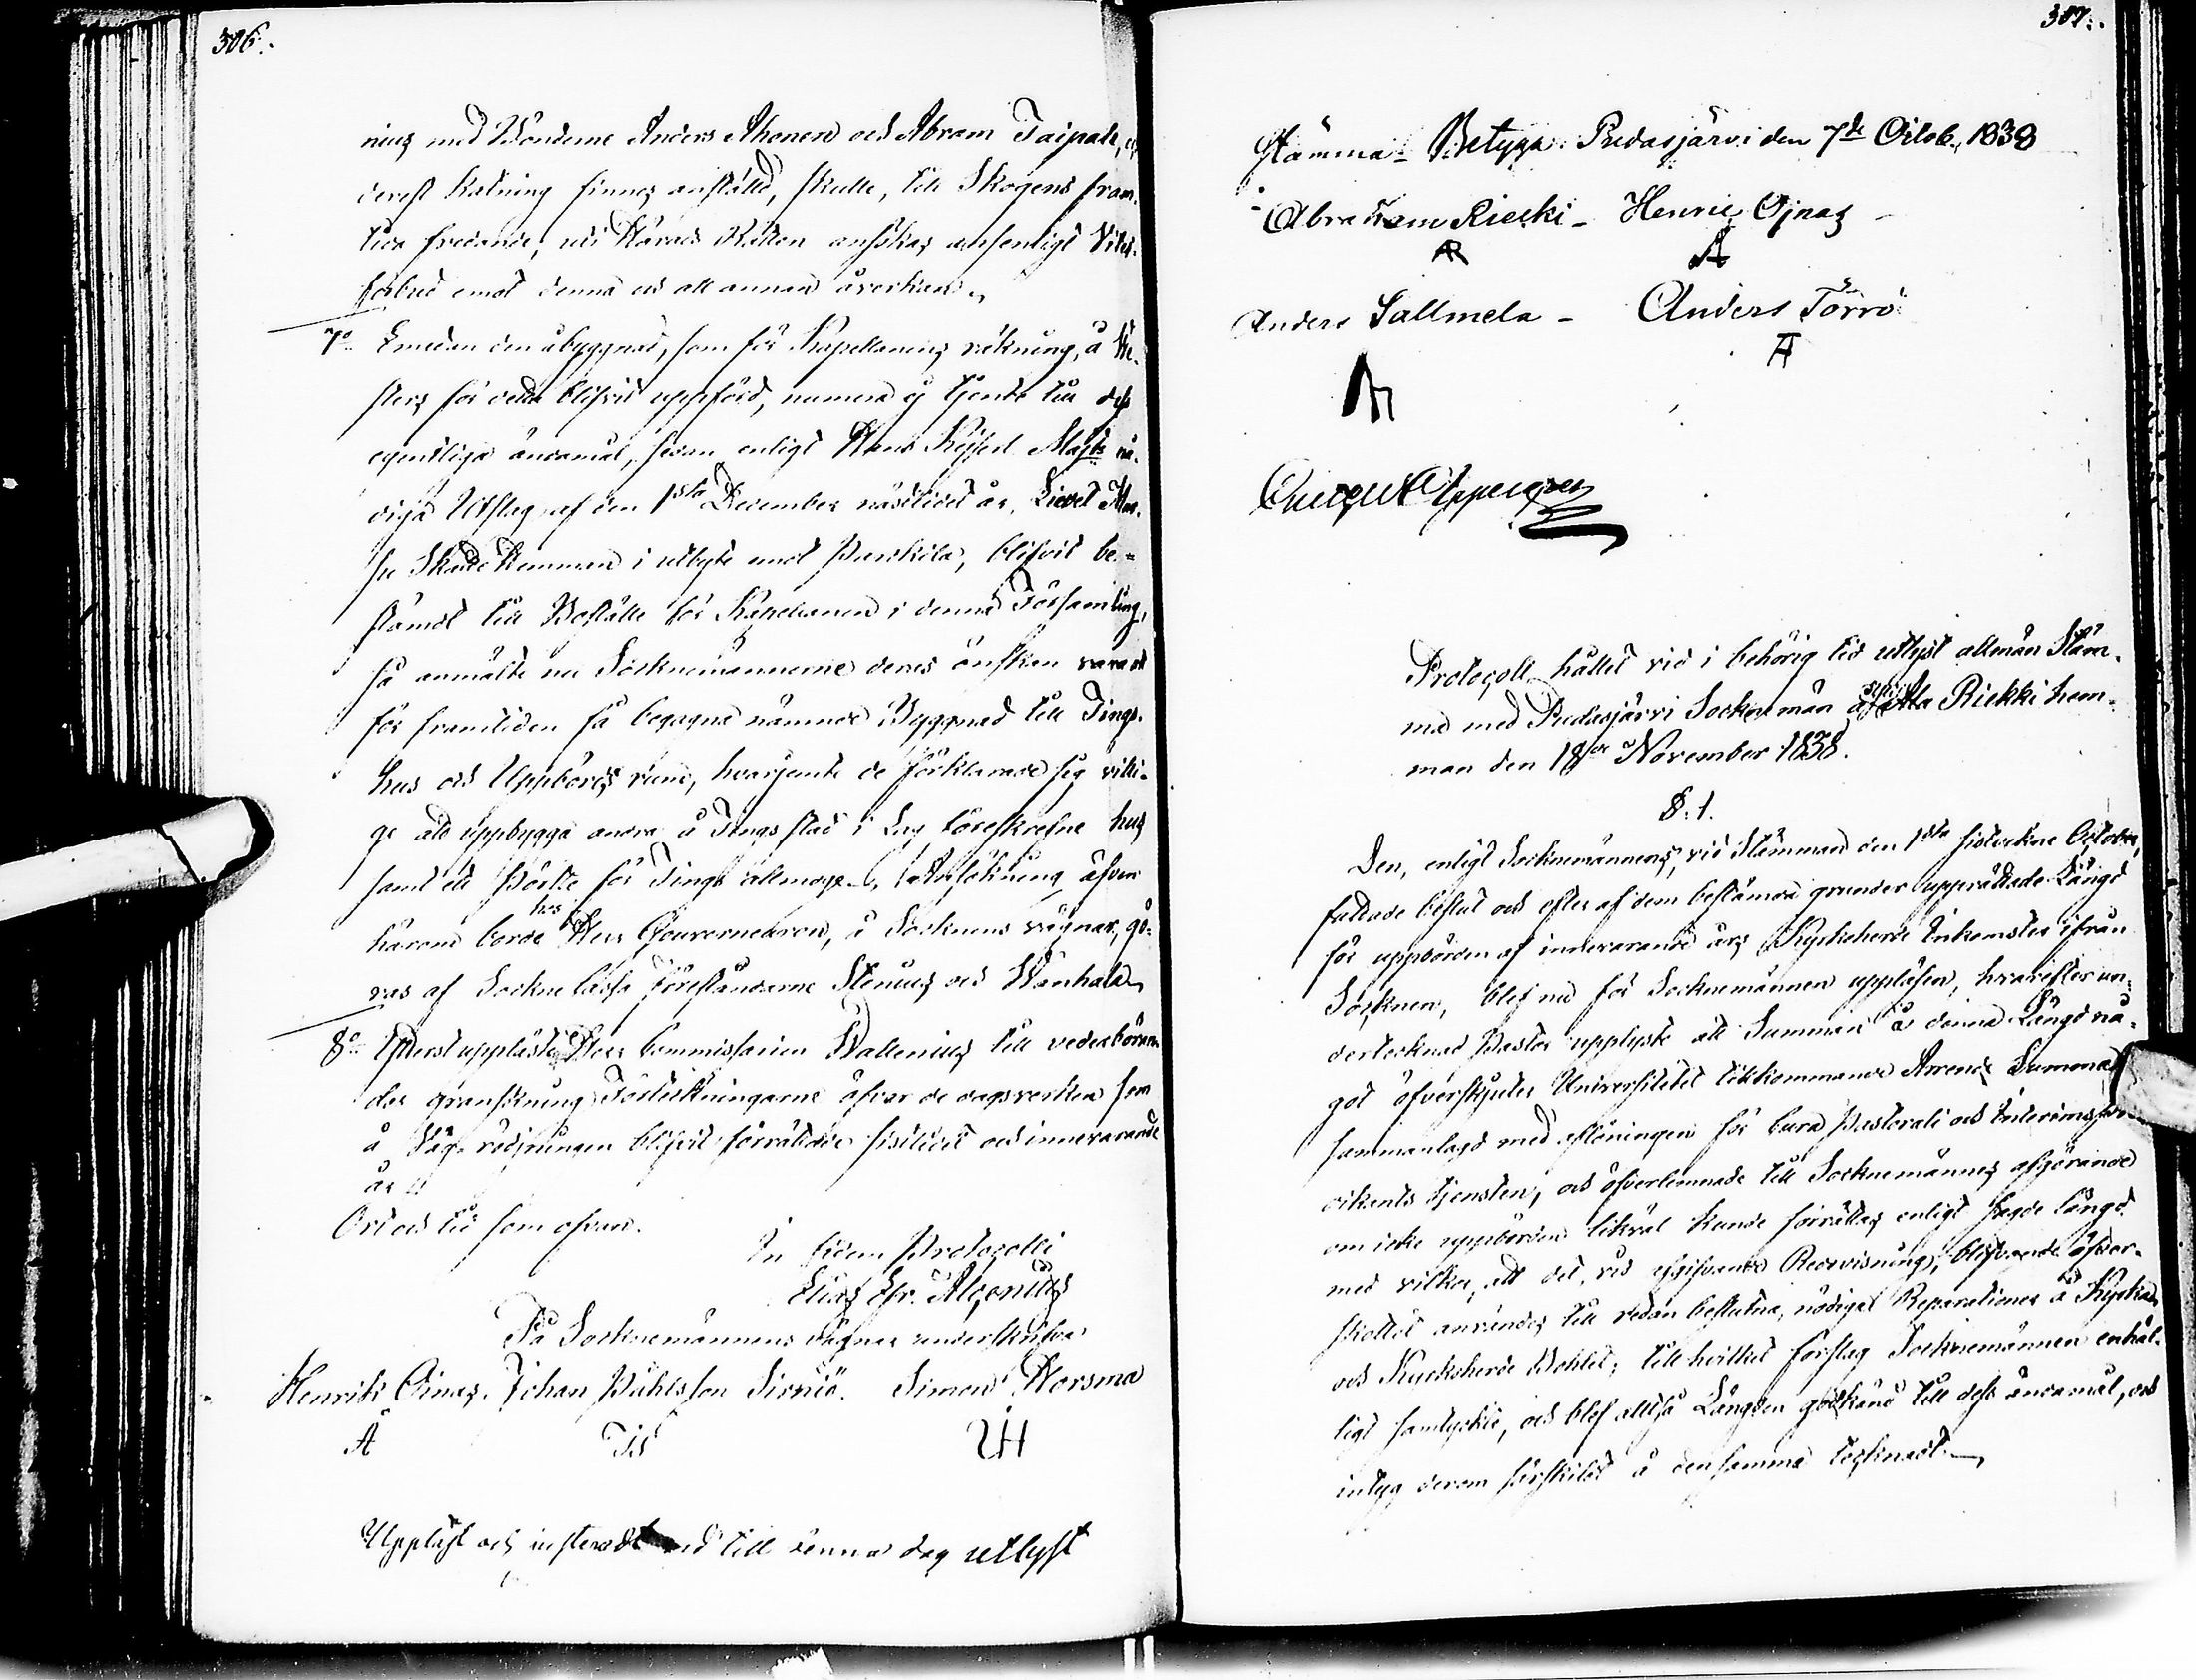 306.
nius med Bönderne Anders Ahonen och Abram Taipale, och
derest skatning finnes anstäld, skulle, till Skogens fram-
tida fredande, uti Härads Rätten ansökas ansenligt Vites-
förbud emot denna och all annan åverkan.
7o Emedan den åbyggnad, som för Kapellanens räkning, å
för detta blifvit uppförd, numera ej tjente till dess
egentliga ändamål, sedan enligt Hans Kejserl. Majts nå-
diga Utslag af den 1sta December nästledit år,
Hemman i utbyte emot Purkila, blifvit be-
stämdt till Boställe för Kapellanen i denna Församling,
så anmälte nu Socknemännerne deras önskan vara att
för framtiden få begagna nämnde Byggnad till Tings-
hus och Uppbörds rum, hvarjemte de förklarade sig villi-
ge att uppbygga andra å Tingsstad i Lag föreskrefne hus
samt ett Pörte för Tings allmoge. Ansökning äfven
härom borde hos Herr Gouverneuren, å Socknens vägnar, gö-
ras af Sockne Cassa Föreståndarne Stenius och Wänhala.
8o Ytterst upplästes Herr Commissarien Wallenius till vederböran-
des granskning Förteckningarne öfver de dagsverken som
å Väg-rödjningen blifvit förrättade sistledit och innevarande
år.
Ort och tid som ofvan.
In fidem Protocolli
Elias Efr. Alcenius
På Socknemännens vägnar underskrifva
Henrik Oinas. Johan Påhlsson Sirniö. Simon Horsma
Uppläst och justeradt vid till denna dag utlyst
307.
Stämma - Betyga. Pudasjärvi den 7de Octob. 1838
Abraham Riecki - Henric Ojnas -
AR
Anders Sallmela - Anders Törrö
Protocoll hållet vid i behörig tid utlyst allmän Stäm-
ma med Pudasjärvi Sockne män å Ala Riekki hem-
man den 18de November 1838.
§. 1.
Den, enligt Socknemännens, vid Stämman den 1sta sistvekne October,
fattade beslut och efter af dem bestämda grunder upprättade Längd
för uppbörden af innevarande års Kyrkoherde Inkomster ifrån
Socknen, blef nu för Socknemännen uppläsen, hvarefter un-
dertecknad Pastor upplyste att Summan å denna Längd nå-
got öfverskjuter Universitetet tillkommande Arrends Summa
sammanlagd med aflöningen för Cura Pastorali och Interims
vikants tjensten, och öfverlemnade till Socknemännens afgörande
om icke uppbörden likväl kunde förrättas enligt sagde längd
med vilkor, att det, vid afgifvande Redovisning, blifvande öfver-
skottet användes till redan beslutna, nödiga Reparationer å Kyrkan
och Kyrkoherde Bohlet; till hvilket förslag Socknemännen enhäl-
ligt samtyckte, och blef alltså Längden godkänd till dess ändamål, och
intyg derom särskildt å densamma tecknadt.